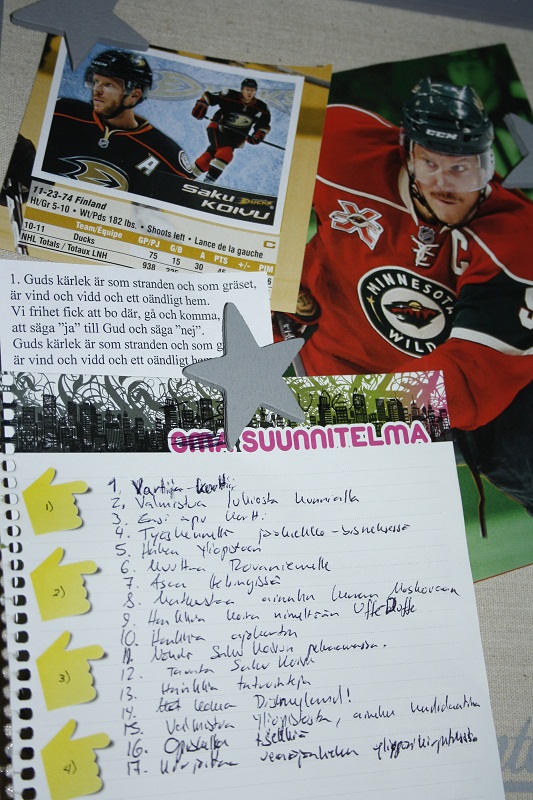 Saku
KOIVU
DUCKS
A
11-23-74 Finland
Ht/Gr 5-10 • Wt/Pds 182 lbs. • Shoots left • Lance de la gauche
C
Team/Équipe GP/PJ G/B A PTS +/- PIM
10-11 Ducks 75 15 30 45
NHL Totals / Totaux LNH 938
CCM
C
MINNESOTA
WILD
1. Guds kärlek är som stranden och som gräset,
är vind och vidd och ett oändligt hem.
Vi frihet fick att bo där, gå och komma,
att säga "ja" till Gud och säga "nej".
Guds kärlek är som stranden och som g
är vind och vidd och ett oändligt hem
OMA SUUNNITELMA
1)
2)
3)
4)
1. Vartija-kortti
2. Valmistua lukiosta kunnialla
3. Ensi apu kortti
4. Työskennellä jääkiekko-bisneksessä
5. Hakea yliopistoon
6. Muuttaa Rovaniemelle
7. Asua Helsingissä
8. Matkustaa ainakin kerran Moskovaan
9. Hankkia koira nimeltään Uffe
10. Hankkia ajokortin
11. Nähdä Saku Koivun pelaamassa.
12. Tavata Saku Koivu
13. Hankkia tatuointeja
14. Disneyland!
15. Valmistua yliopistosta, ainakin kandidaatiksi
16. Opiskella
17.